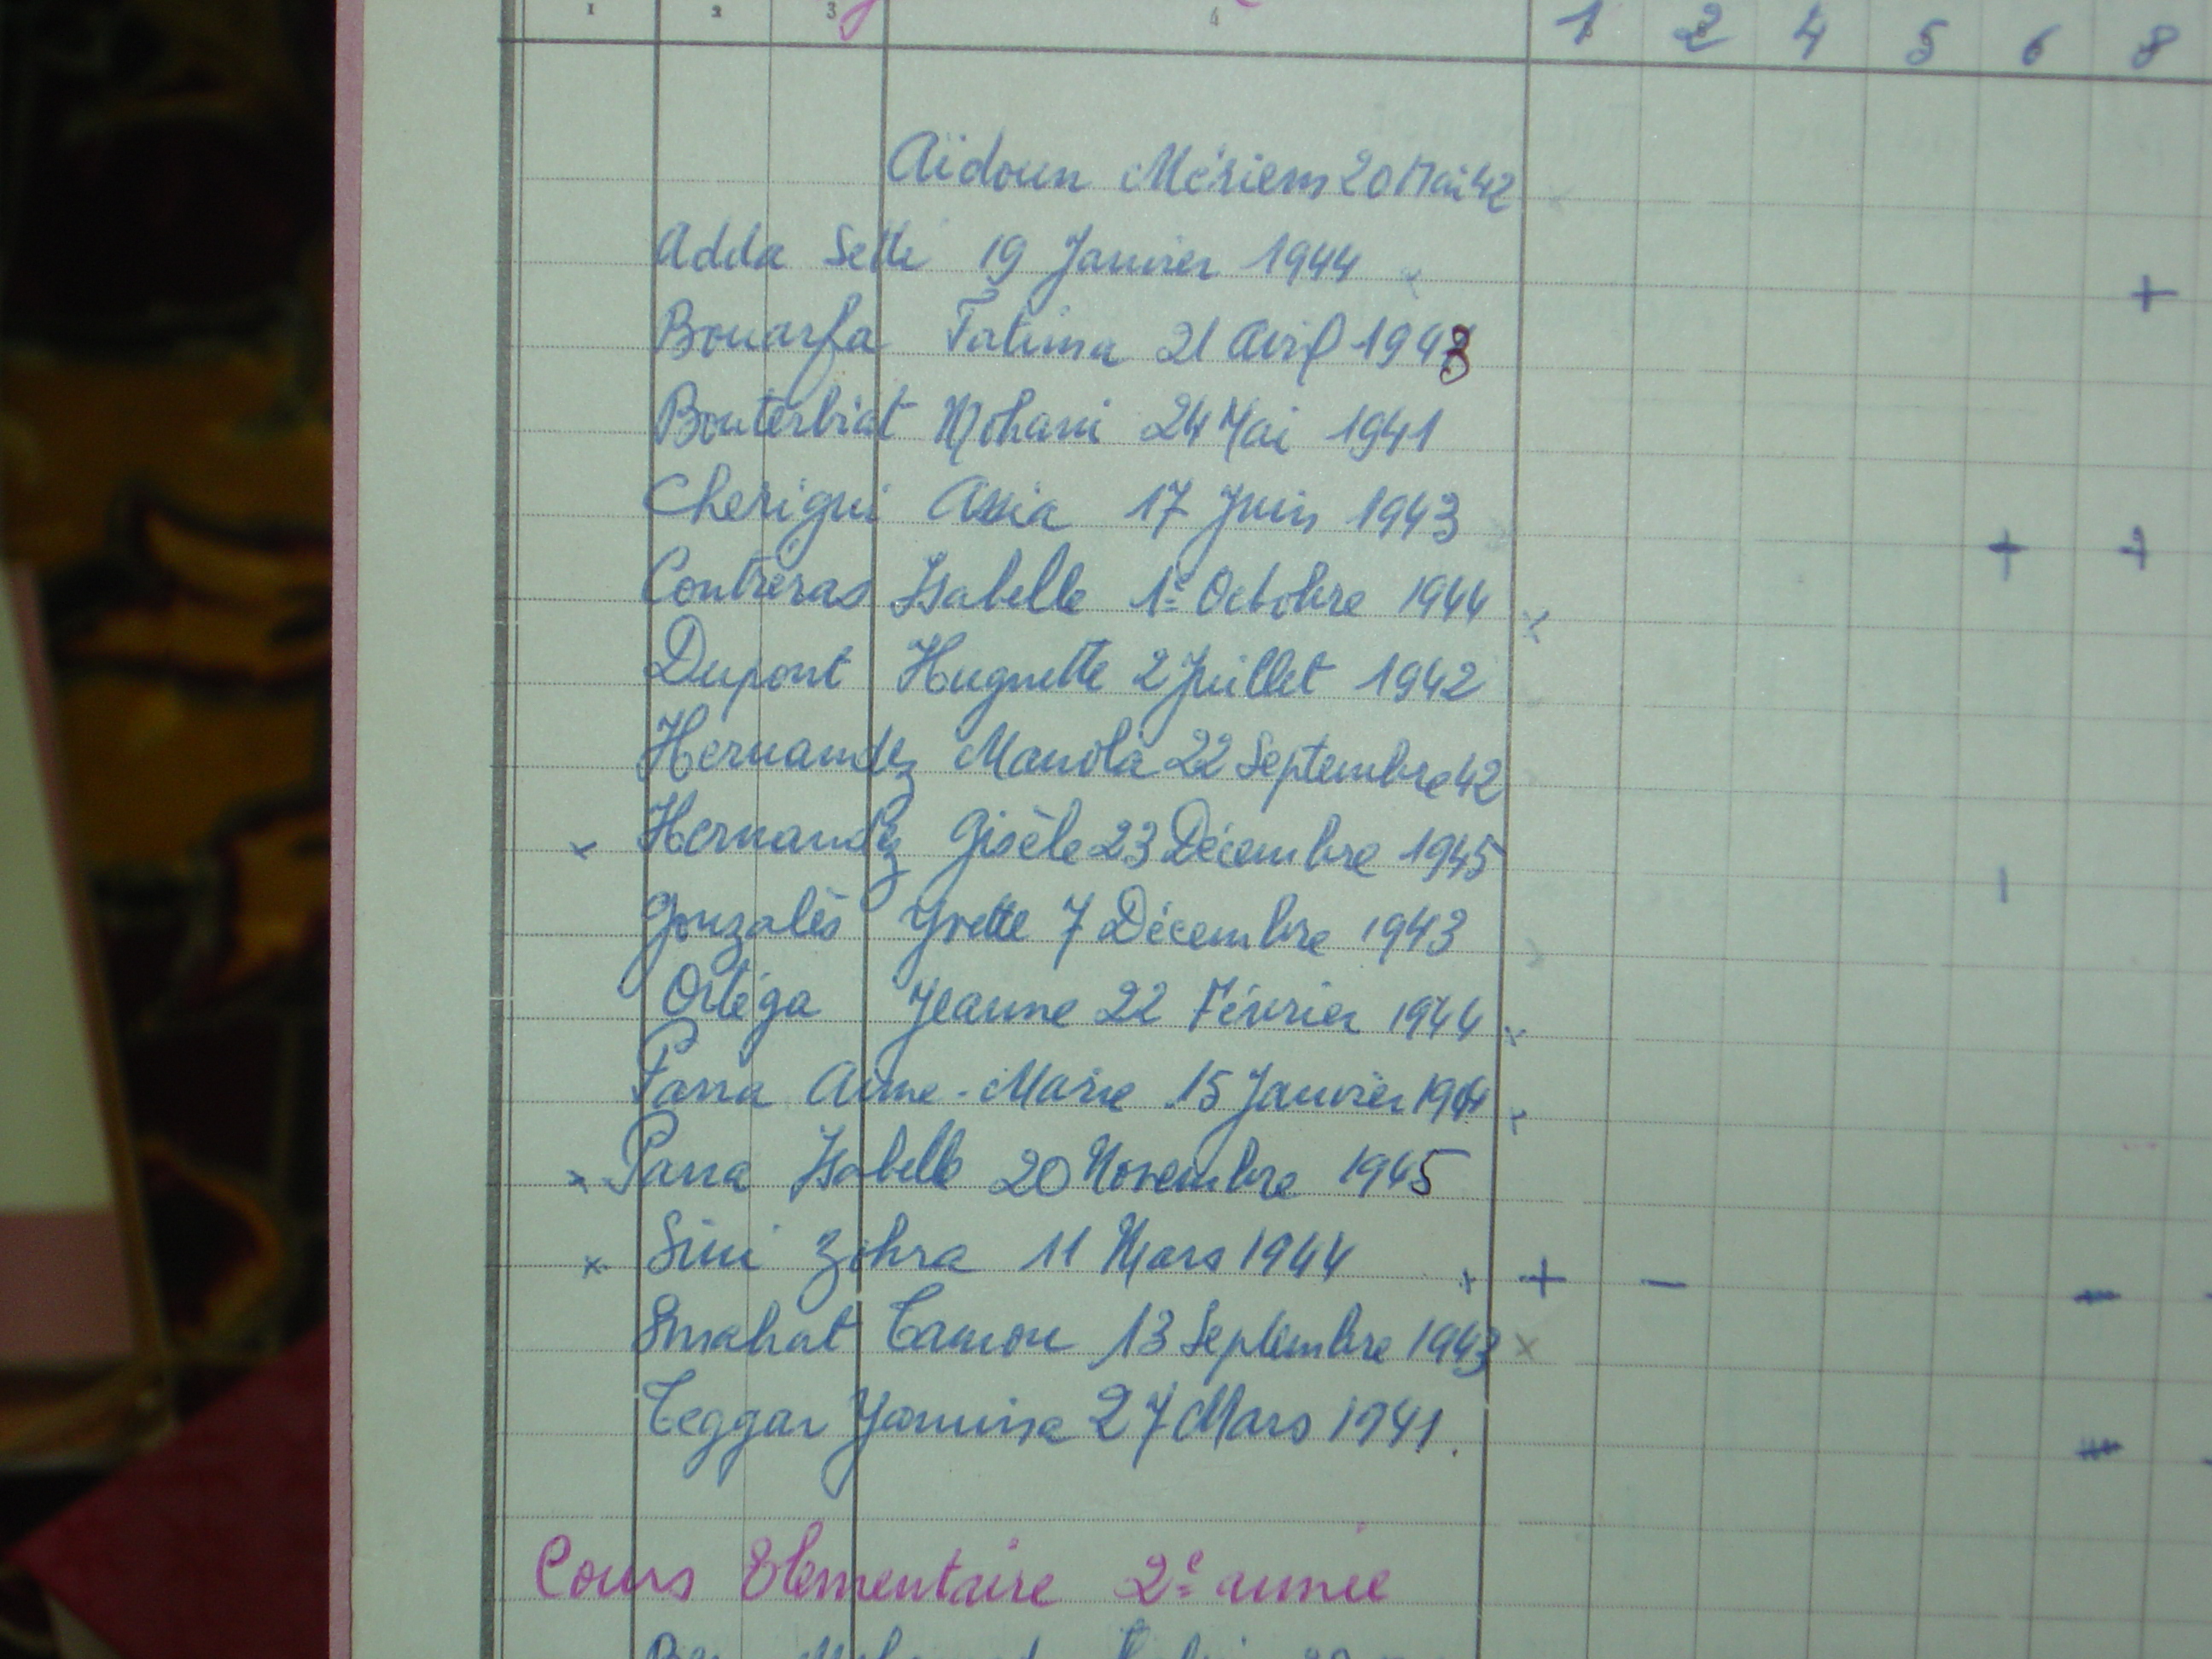 1 2 3 4 1 2 4 5 6 8
Aïdoun Mériem 20 Mai 42
Adda Setti 19 Janvier 1944
Bouarfa Fatima 21 Avril 1943
Bouterbiat Mohani 24 Mai 1941
Cherigui Assia 17 Juin 1943
Contréras Isabelle 1e Octobre 1944
Dupont Huguette 2 Juillet 1942
Hernandez Manola 22 Septembre 42
x Hernandez Gisèle 23 Décembre 1945
Gonzalès Yvette 7 Décembre 1943
Ortéga Jeanne 22 Février 1944 x
Parra Anne-Marie 15 Janvier
x Parra Isabelle 20 Novembre 1945
x Sini Zohra 11 Mars 1944 x + -
Smahat Tamou 13 Septembre 1943 x
Teggar Yamina 27 Mars 1941.
Cours Elementaire 2e année